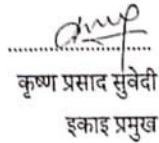 कृष्ण प्रसाद सुवेदी
इकाइ प्रमुख